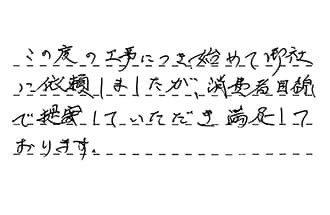 この度の工事につき始めて御社
に依頼しましたが、消費者目線
で提案していただき満足して
おります。